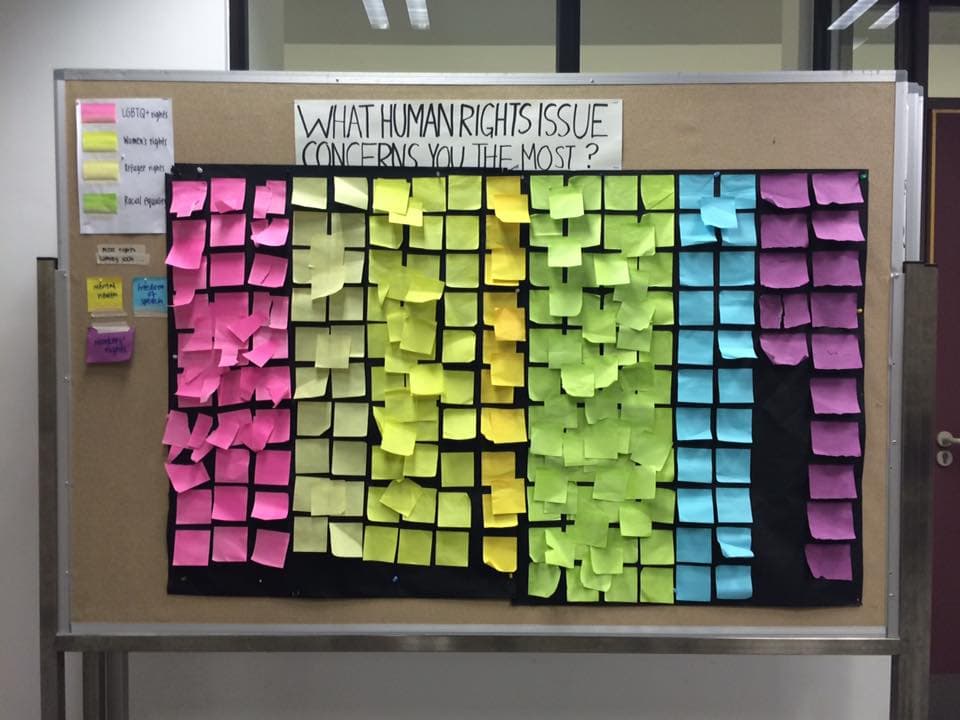 WHAT HUMAN RIGHTS ISSUE
CONCERNS YOU THE MOST?
LGBTQ+ rights
Women's rights
Refugee rights
Racial equality
mental
health
freedom
of
speech
Workers'
rights